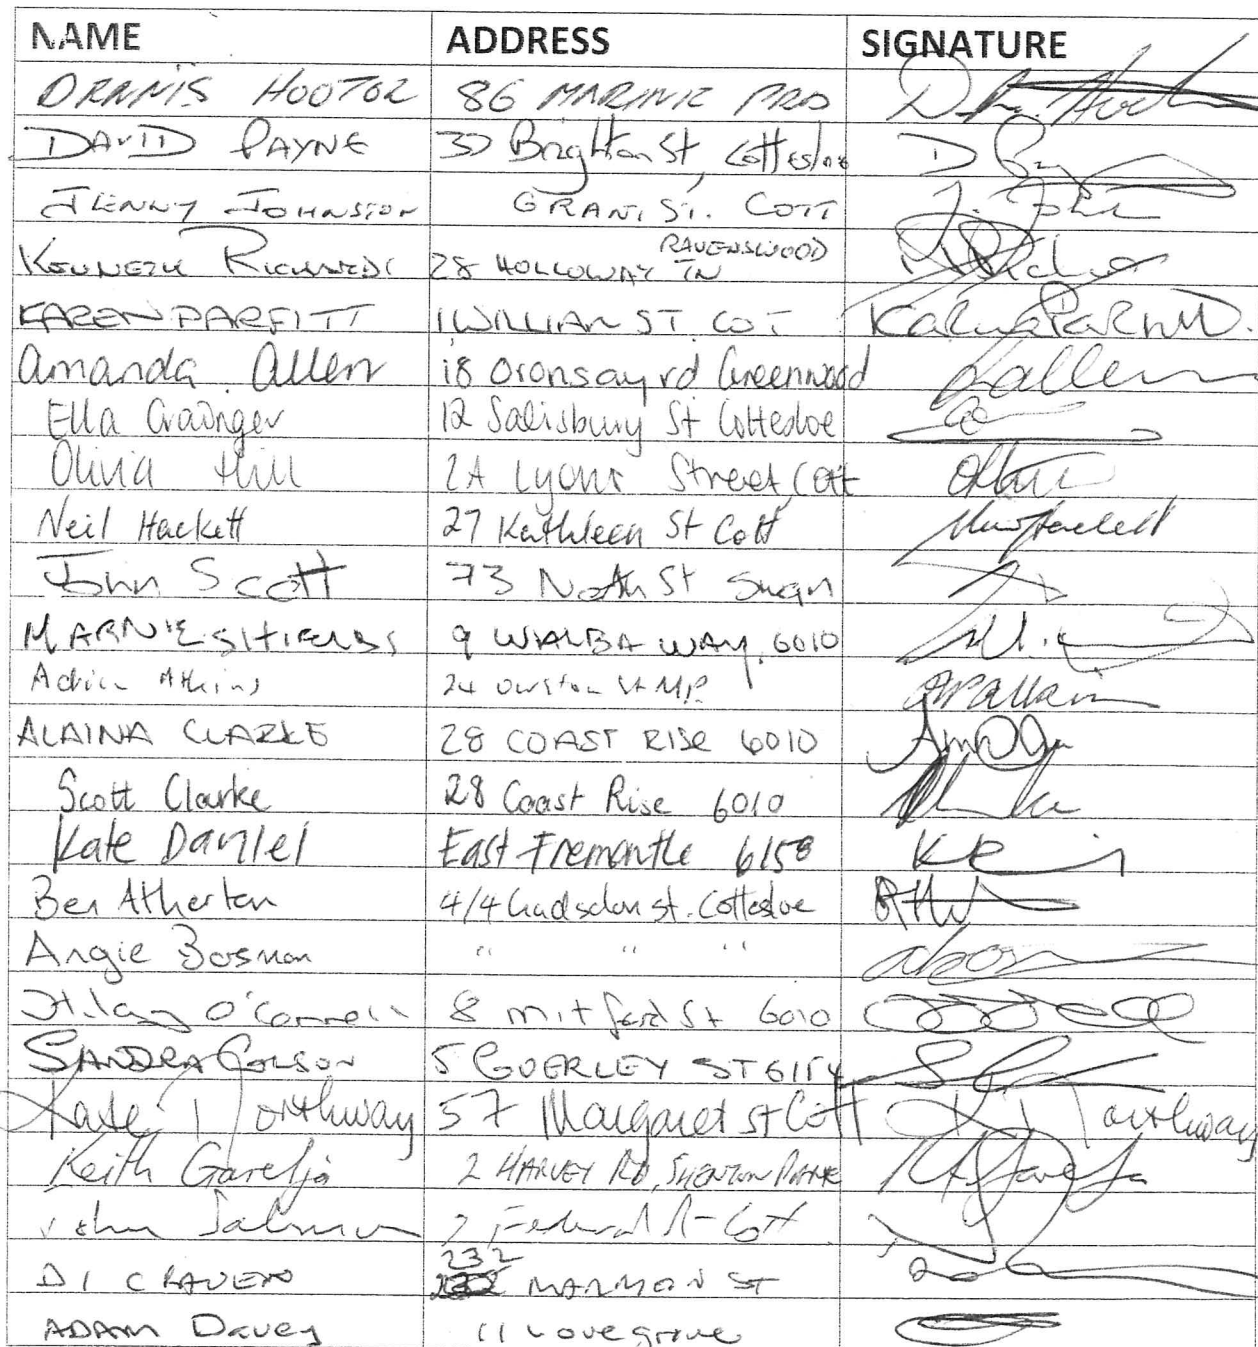 NAME ADDRESS SIGNATURE
DENNIS HOOTOR 86 MARINE PRD
DAVID PAYNE 37 Brighton St, Cottesloe
JENNY JOHNSTON GRANT ST. COTT
KENNETH RICHARDS 28 HOLLOWAY LN RAVENSWOOD
KAREN PARFITT 1 WILLIAM ST COT
Amanda Allen 18 Oronsay rd Greenwood
Ella Grainger 12 Salisbury St Cottesloe
Olivia Hill 2A Lyons Street, Cott
Neil Hackett 27 Kathleen St Cott
John Scott 73 North St Swan
MARNIE SHIELDS 9 WIALBA WAY, 6010
Atkins 24 St MP.
ALAINA CLARKE 28 COAST RISE 6010
Scott Clarke 28 Coast Rise 6010
Kate Daniel East Fremantle 6158
Ben Atherton 4/4 Gadsdon st. Cottesloe
Angie Bosman " " "
Hilary O'Connell 8 Mitford St 6010
SANDRA COLSON 5 GOERLEY ST 6154
Kate Northway 57 Margaret st Cott K Northway
Keith Garelja 2 HARVEY RD, SHENTON PARK
John Salmon 7 Federal St Cott
DI CRAVEN 232 MARMION ST
ADAM Davey 11 Lovegrove